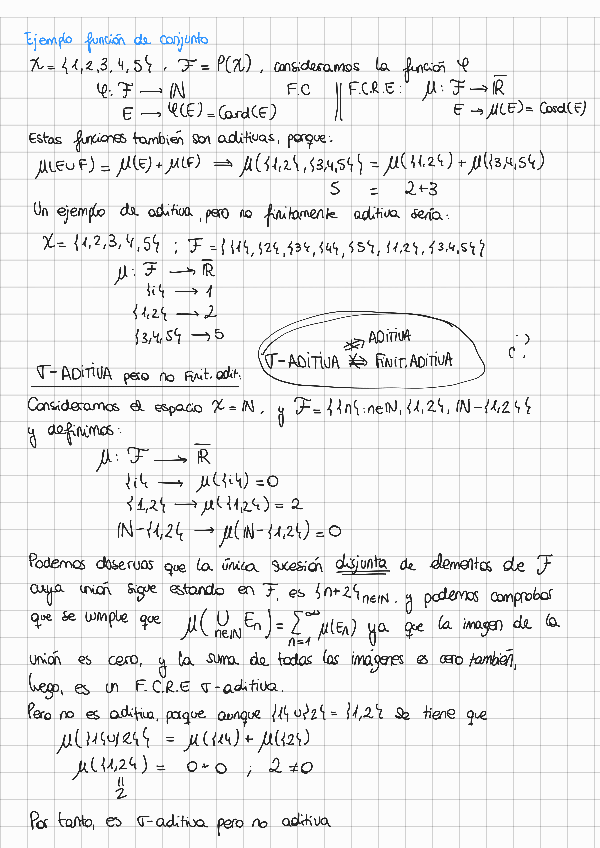 Ejemplo función de conjunto
X = {1,2,3,4,5}, F = P(X), consideramos la función φ
φ: F → ℕ F.C || F.C.R.E: μ: F → ℝ̅
E → φ(E) = Card(E) E → μ(E) = Card(E)
Estas funciones también son aditivas, porque:
μ(E∪F) = μ(E) + μ(F) ⇒ μ({1,2}, {3,4,5}) = μ({1,2}) + μ({3,4,5})
5 = 2+3
Un ejemplo de aditiva, pero no finitamente aditiva sería:
X = {1,2,3,4,5} ; F = {{1}, {2}, {3}, {4}, {5}, {1,2}, {3,4,5}}
μ: F → ℝ̅
{i} → 1
{1,2} → 2
{3,4,5} → 5
ADITIVA
σ-ADITIVA ⇎ FINIT. ADITIVA
σ-ADITIVA pero no Finit. adit.
Consideramos el espacio X = ℕ, y F = {{n}: n∈ℕ, {1,2}, ℕ-{1,2}}
y definimos:
μ: F → ℝ̅
{i} → μ({i}) = 0
{1,2} → μ({1,2}) = 2
ℕ-{1,2} → μ(ℕ-{1,2}) = 0
Podemos observar que la única sucesión disjunta de elementos de F
cuya unión sigue estando en F, es {n+2}n∈ℕ, y podemos comprobar
que se cumple que μ(∪n∈ℕ En) = Σn=1^∞ μ(En) ya que la imagen de la
unión es cero, y la suma de todas las imágenes es cero también,
luego, es un F.C.R.E σ-aditiva.
Pero no es aditiva, porque aunque {1}∪{2} = {1,2} se tiene que
μ({1}∪{2}) = μ({1}) + μ({2})
μ({1,2}) = 0+0 ; 2≠0
||
2
Por tanto, es σ-aditiva pero no aditiva